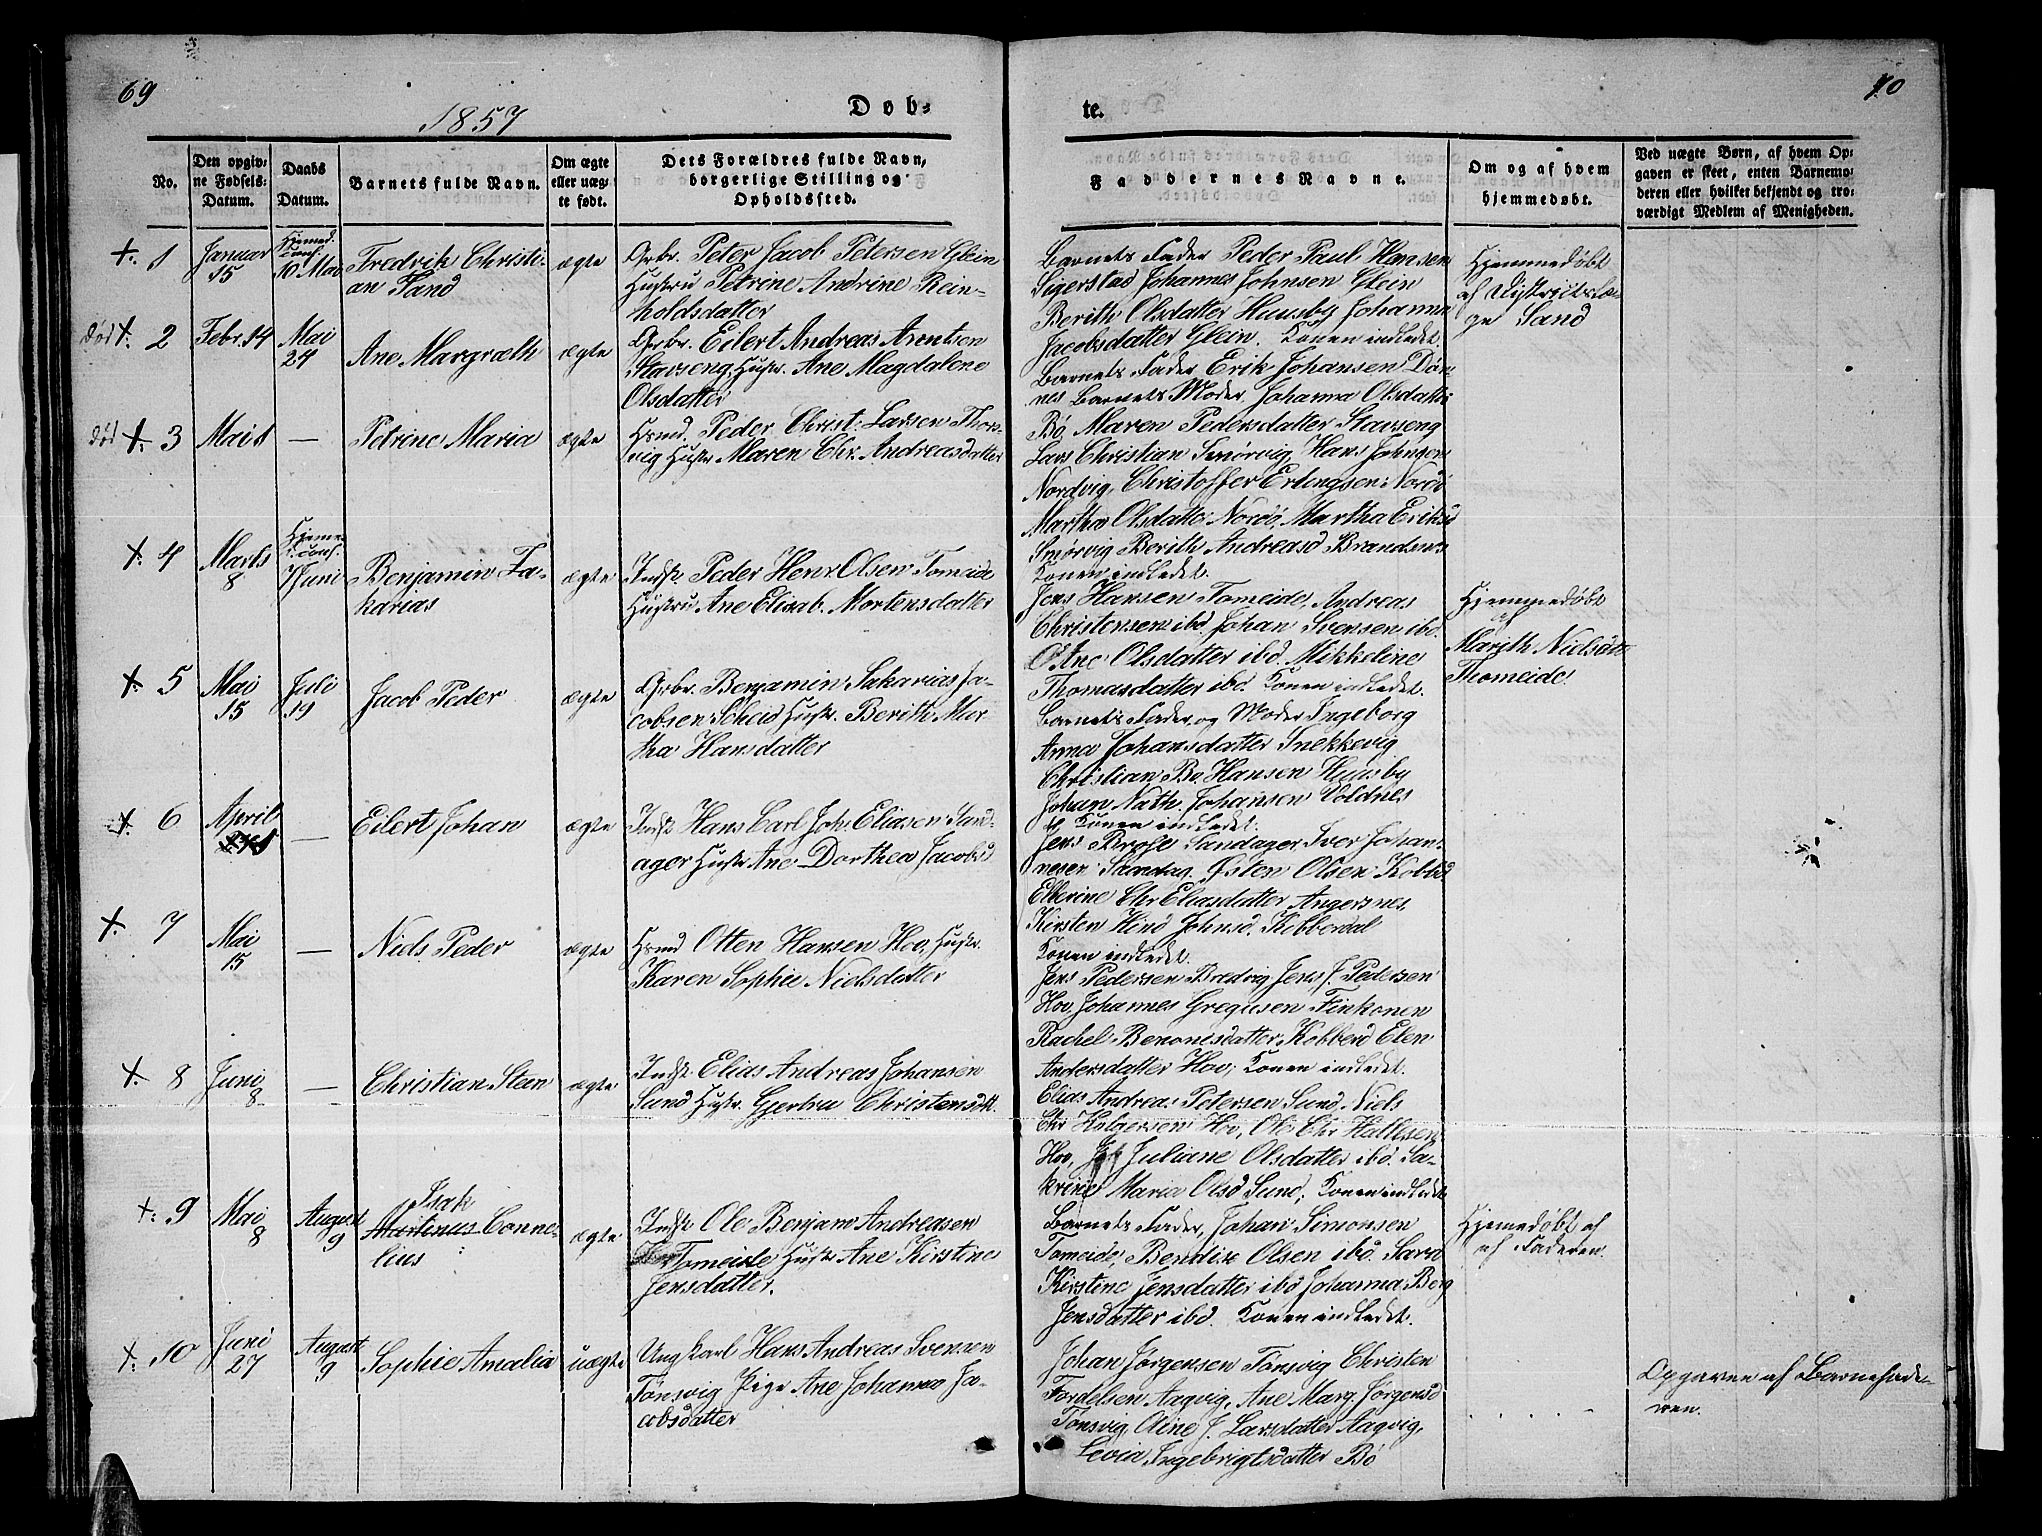 69
70
1857
Døb-
te.
No.
Den opgiv-
ne Fødsels-
Datum.
Daabs
Datum.
Barnets fulde Navn.
Om ægte
eller uæg-
te født.
Dets Forældres fulde Navn,
borgerlige Stilling og
Opholdssted.
Faddernes Navne.
Om og af hvem
hjemmedøbt.
Ved uægte Børn, af hvem Op-
gaven er skeet, enten Barnemo-
deren eller hvilket bekjendt og tro-
værdigt Medlem af Menigheden.
+. 1
Januar
15
Hjemed.
Conf.
10 Mai
Fredrik Christi-
an Sand
ægte
Grbr. Peter Jacob Petersen Glein
Hustru Petrine Andrine Rein-
holdsdatter
Barnets Fader Peder Paul Hansen
Sigerstad Johannes Johnsen Glein
Berith Olsdatter Huusby Johanna
Jacobsdatter Glein. Konen indledet.
Hjemmedøbt
af Distriktslæ-
ge Sand
død +. 2
Febr. 14
Mai
24
Ane Margræth
ægte
Grbr. Eilert Andreas Arntsen
Stavseng, Hustr. Ane Magdalene
Olsdatter
Barnets Fader Erik Johansen Døn-
nes Barnets Moder, Johanna Olsdatter
Bø, Maren Pedersdatter Stavseng
død +. 3
Mai 1
—
Petrine Maria
ægte
Hsmd. Peder Christ. Larsen Thon-
vig Hustr Maren Chr. Andreasdatter
Lars Christian Smørvig, Hans Johnsen
Nordvig, Christoffer Erlengsen Nordö
Martha Olsdatter Nordö, Martha Eriksd
Smørvig Berith Andreasd Brandsn
Konen indledet.
+. 4
Marts
8
Hjeme
d. conf.
7 Juni
Benjamin Za-
karias
ægte
Indst. Peder Henr. Olsen Tomeide
Hustru Ane Elisab. Mortensdatter
Jens Hansen Tomeide, Andreas
Christensen ibd. Johan Svensen ibd.
Ane Olsdatter ibd. Mikkeline
Thomasdatter ibd. Konen indledet.
Hjemmedøbt
af
Marith Nielsdtr
Thomeide
+. 5
Mai
15
Juli
19
Jacob Peder
ægte
Grbr. Benjamin Sakarias Ja-
cobsen Scheid Hustr. Berith Mar
tha Hansdatter
Barnets Fader og Moder Ingeborg
Anna Johansdatter Snekkevig
Christian Bo. Hansen Huusby
Johan Nath. Johansen Voldnes
Konen indledet.
+. 6
April
—
Eilert Johan
ægte
Indst Hans Carl Joh. Eliasen Sand-
ager Hustr Ane Dorthea Jacobsd
Jens Brose Sandager Iver Johan-
nesen Sandag. Østen Olsen Kobbd
Elberine Chr Eliasdatter Angersnes,
Kirsten Hind Johnsd. Kibberdal
Konen indledet.
+. 7
Mai
15
—
Niels Peder
ægte
Hsmd Otten Hansen Hov, Hustr.
Karen Sophie Nielsdatter
Jens Pedersen Brædvig Jens J. Pedersen
Hov, Johannes Gregusen Finkonen
Rachel Benonesdatter Kobberd Elen
Andersdatter Hov, Konen indledet.
+. 8
Juni
8
—
Christian Sten
ægte
Indst Elias Andreas Johansen
Sund Hustr. Gjertru Christensdtt.
Elias Andreas Petersen Sund Niels
Chr Holgersen Hov, Ole Chr Hallesen
Hov, Juliane Olsdatter ibd. Sa-
krine Maria Olsd Sund, Konen indledet
+. 9
Mai
8
August
9
Isak
Martinus Conne-
lius
ægte
Indst Ole Benjam Andreasen
Tomeide Hustr Ane Kirstine
Jensdatter.
Barnets Fader, Johan Simonsen
Tomeide, Bendix Olsen ibd. Sara
Kirstine Jensdatter ibd Johanna Berg
Jensdatter ibd. Konen indledet.
Hjemedøbt af
af Faderen.
+. 10
Juni
27
August
9
Sophie Amalia
uægte
Ungkarl Hans Andreas Svensen
Tönsvig Pige Ane Johanna Ja-
cobsdatter
Johan Jørgensen Tønsvig Christen
Fordelsen Aagvig, Ane Marg. Jørgensd
Tønsvig, Oline J. Larsdatter Aagvig,
Levia Ingebrigtsdatter Bö
Opgaven af Barnefade-
ren.